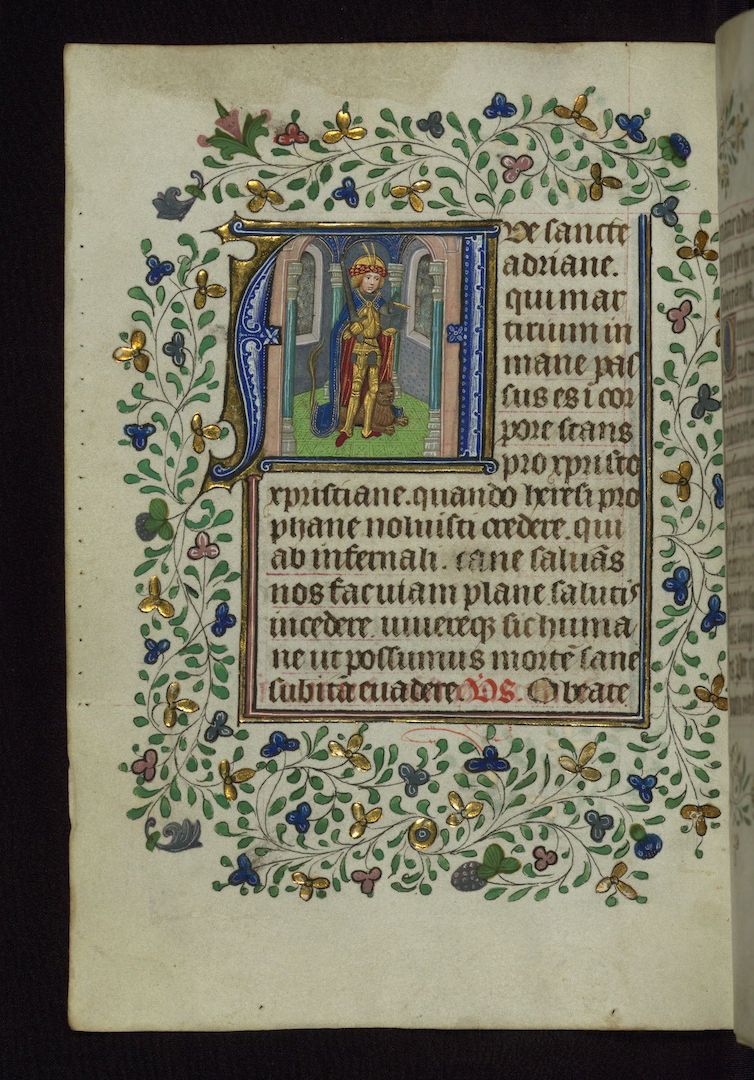 Ave sancte
adriane.
qui mar
tirium in
mane pas
sus es i cor
pore stans
pro xpristo
xpristiane. quando heresi pro
phane noluisti credere. qui
ab infernali. cane saluās
nos fac uiam plane salutis
incedere. uiuereq; sic huma
ne ut possumus mortē sane
subitā euadere V̄S. O beate